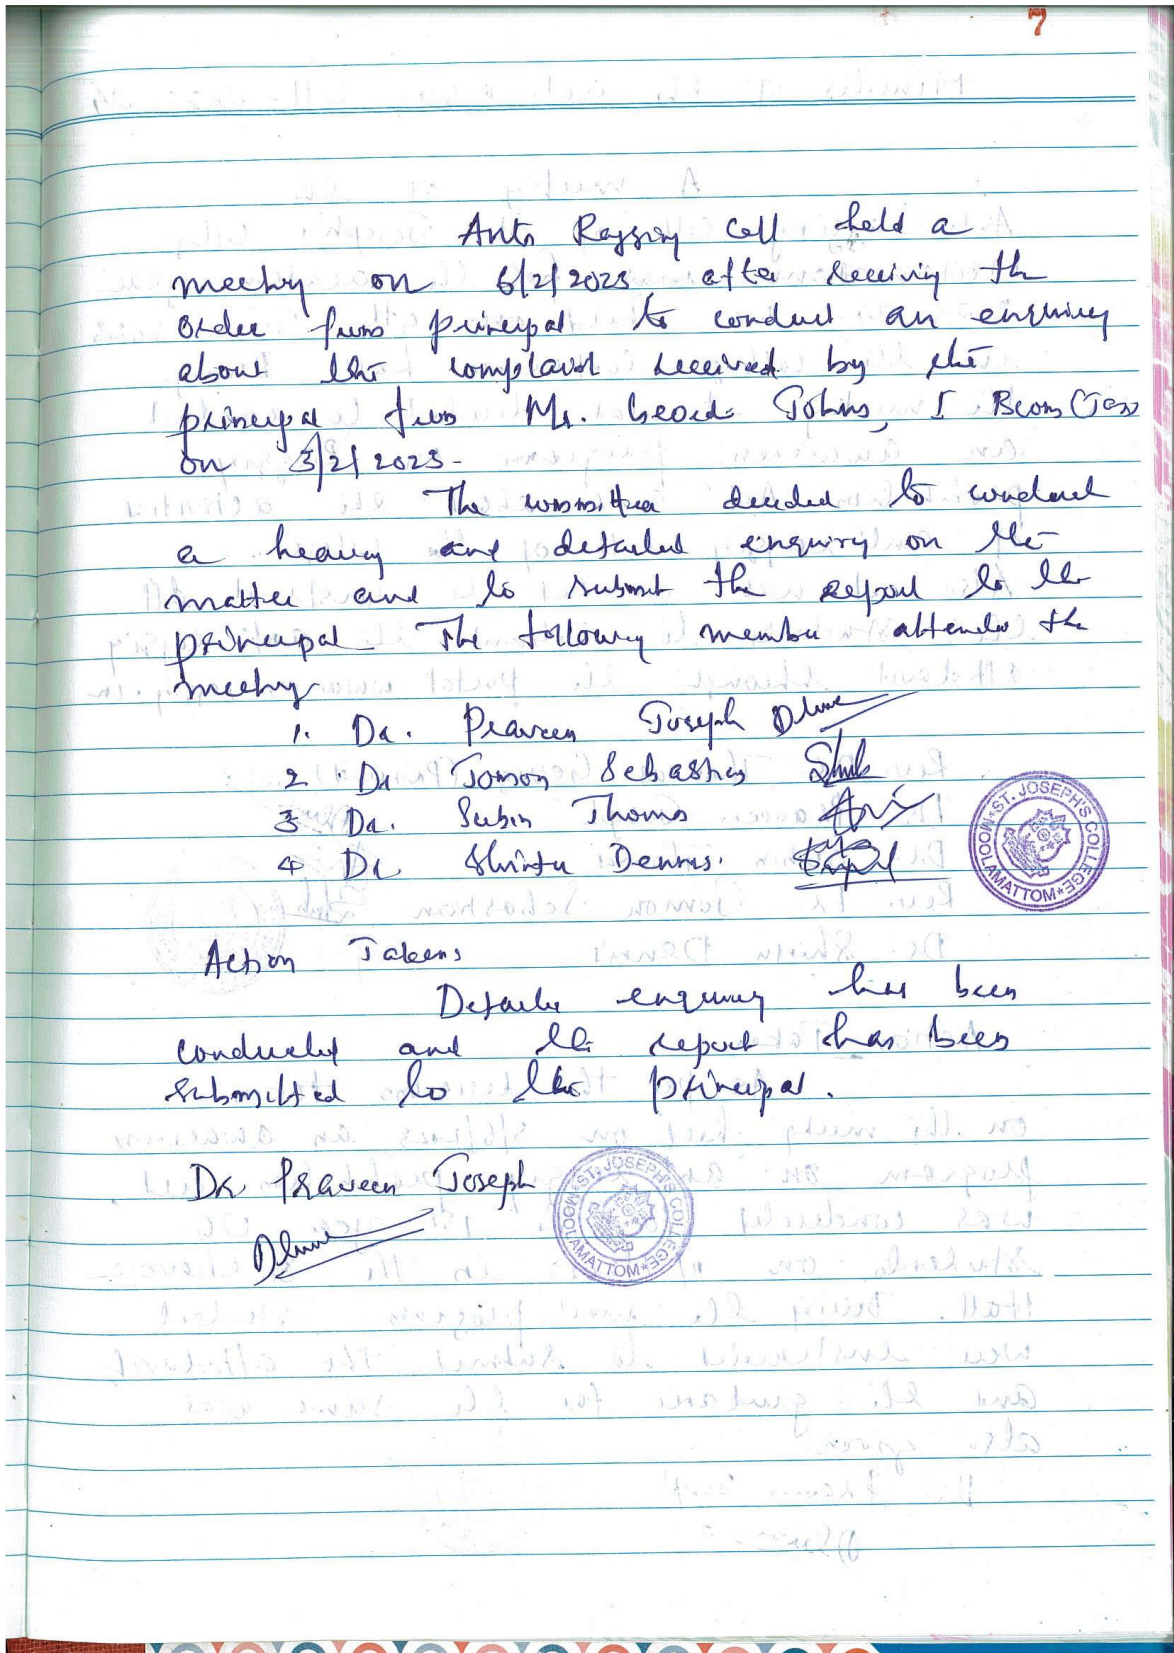 7
Anti Ragging Cell held a
meeting on 6/2/2023 after receiving the
order from principal to conduct an enquiry
about the complaint received by the
principal from Mr. Johns, I Bcom (Tax)
on 3/2/2023.
The committee decided to conduct
a hearing and detailed enquiry on the
matter and to submit the report to the
principal The following member attended the
meeting
1. Dr. Praveen Joseph
2. Dr Jomon Sebastian
3 Dr. Subin Thomas
4 Dr Shintu Dennis.
ST. JOSEPH'S COLLEGE MOOLAMATTOM
Action Taken
Detailed enquiry has been
conducted and the report has been
submitted to the principal.
Dr Praveen Joseph
ST. JOSEPH'S COLLEGE MOOLAMATTOM